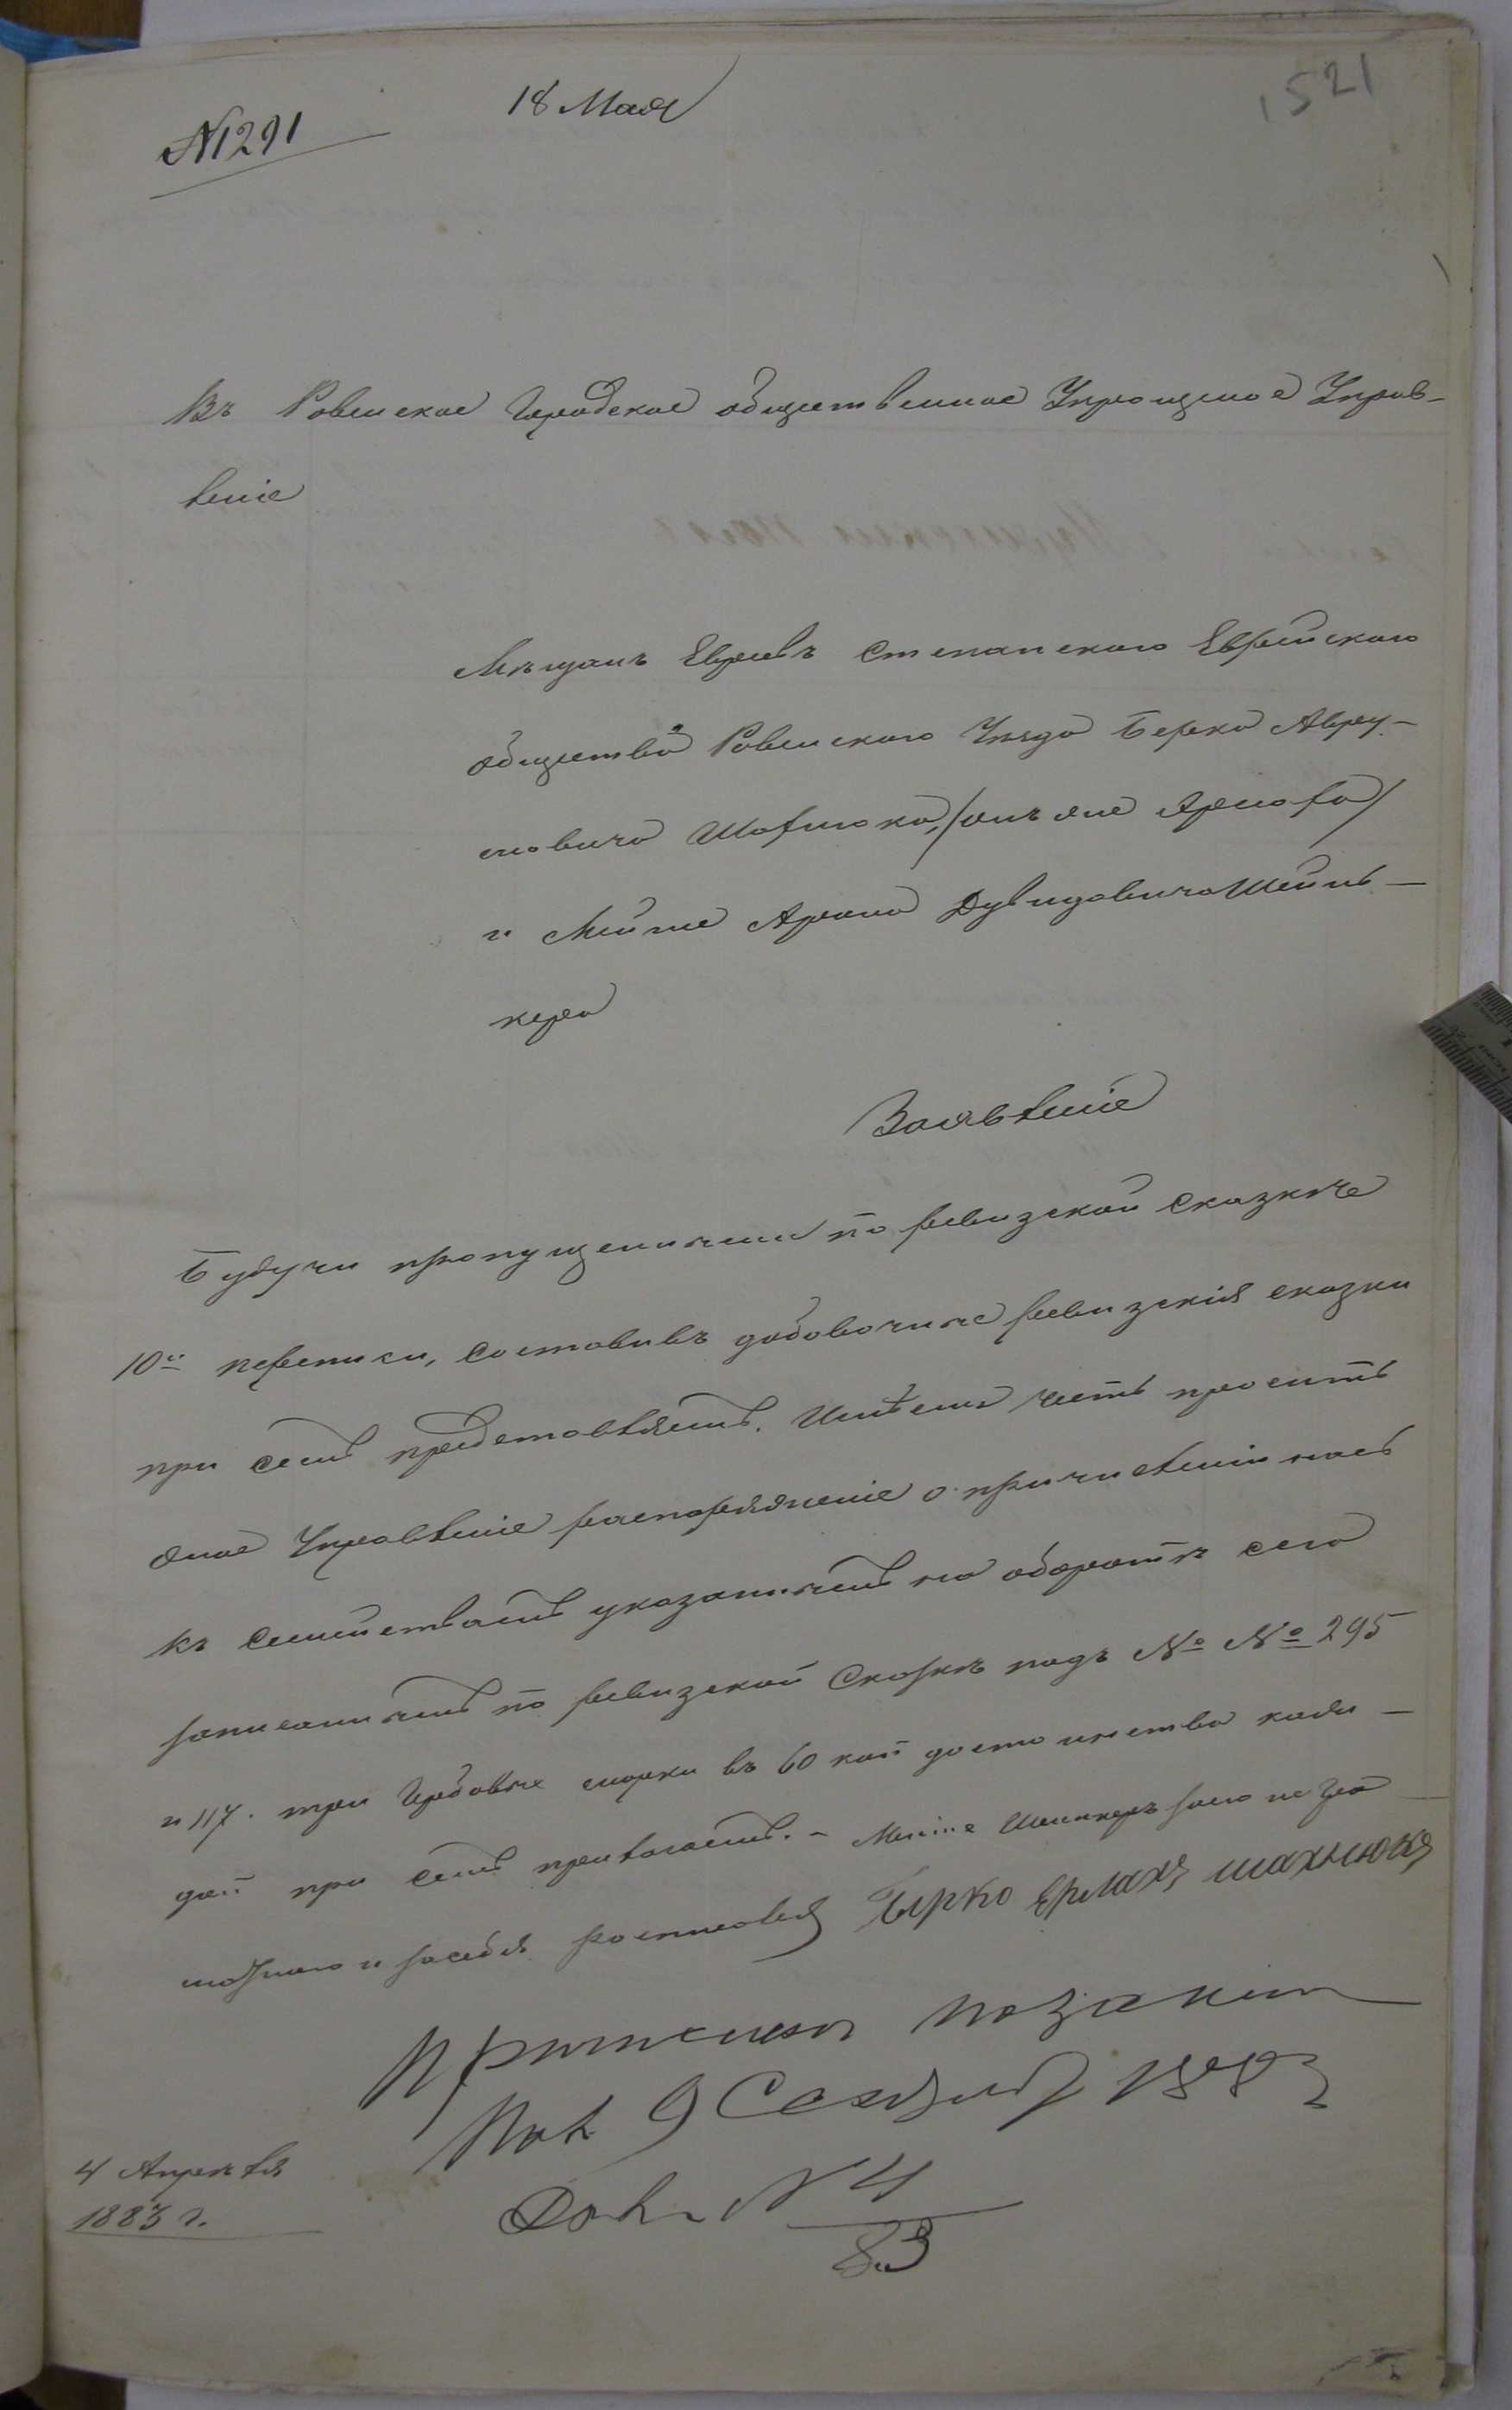 18 Мая
1521
№1291
Въ Ровенское Городское общественное Упрощеное Управ-
леніе
Мѣщанъ Евреевъ Степанского Еврейского
общества Ровенского Уѣзда Берка Авру-
мовича Шахнюка, /онъ же
и Мейше Арона Дувидовича Шейнь-
кера
Заявленіе
Будучи пропущенными по ревизской сказкѣ
10й переписи, составивъ добовочные ревизскія сказки
при семъ представляемъ. Имѣемъ честь просить
оное Управленіе распоряженіе о причисленіи насъ
къ семействамъ указаннымъ на оборотѣ сего
записаннымъ по ревизской Сказкѣ подъ № № 295
и 117. три Гербовые марки въ 60 коп достоинства каж-
дой при семъ прилагаемъ. - Шейнкеръ за него неграмотного и засебя росписовался Бирко Ермахъ шахнюкъ
4 Апрѣля
1883 г.
№ 4
83